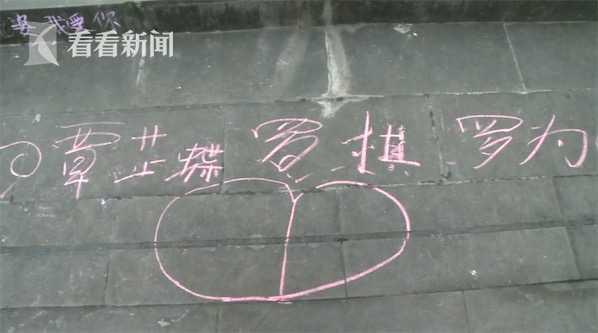 我爱你
看看新闻
覃芷蝶 罗棋 罗为